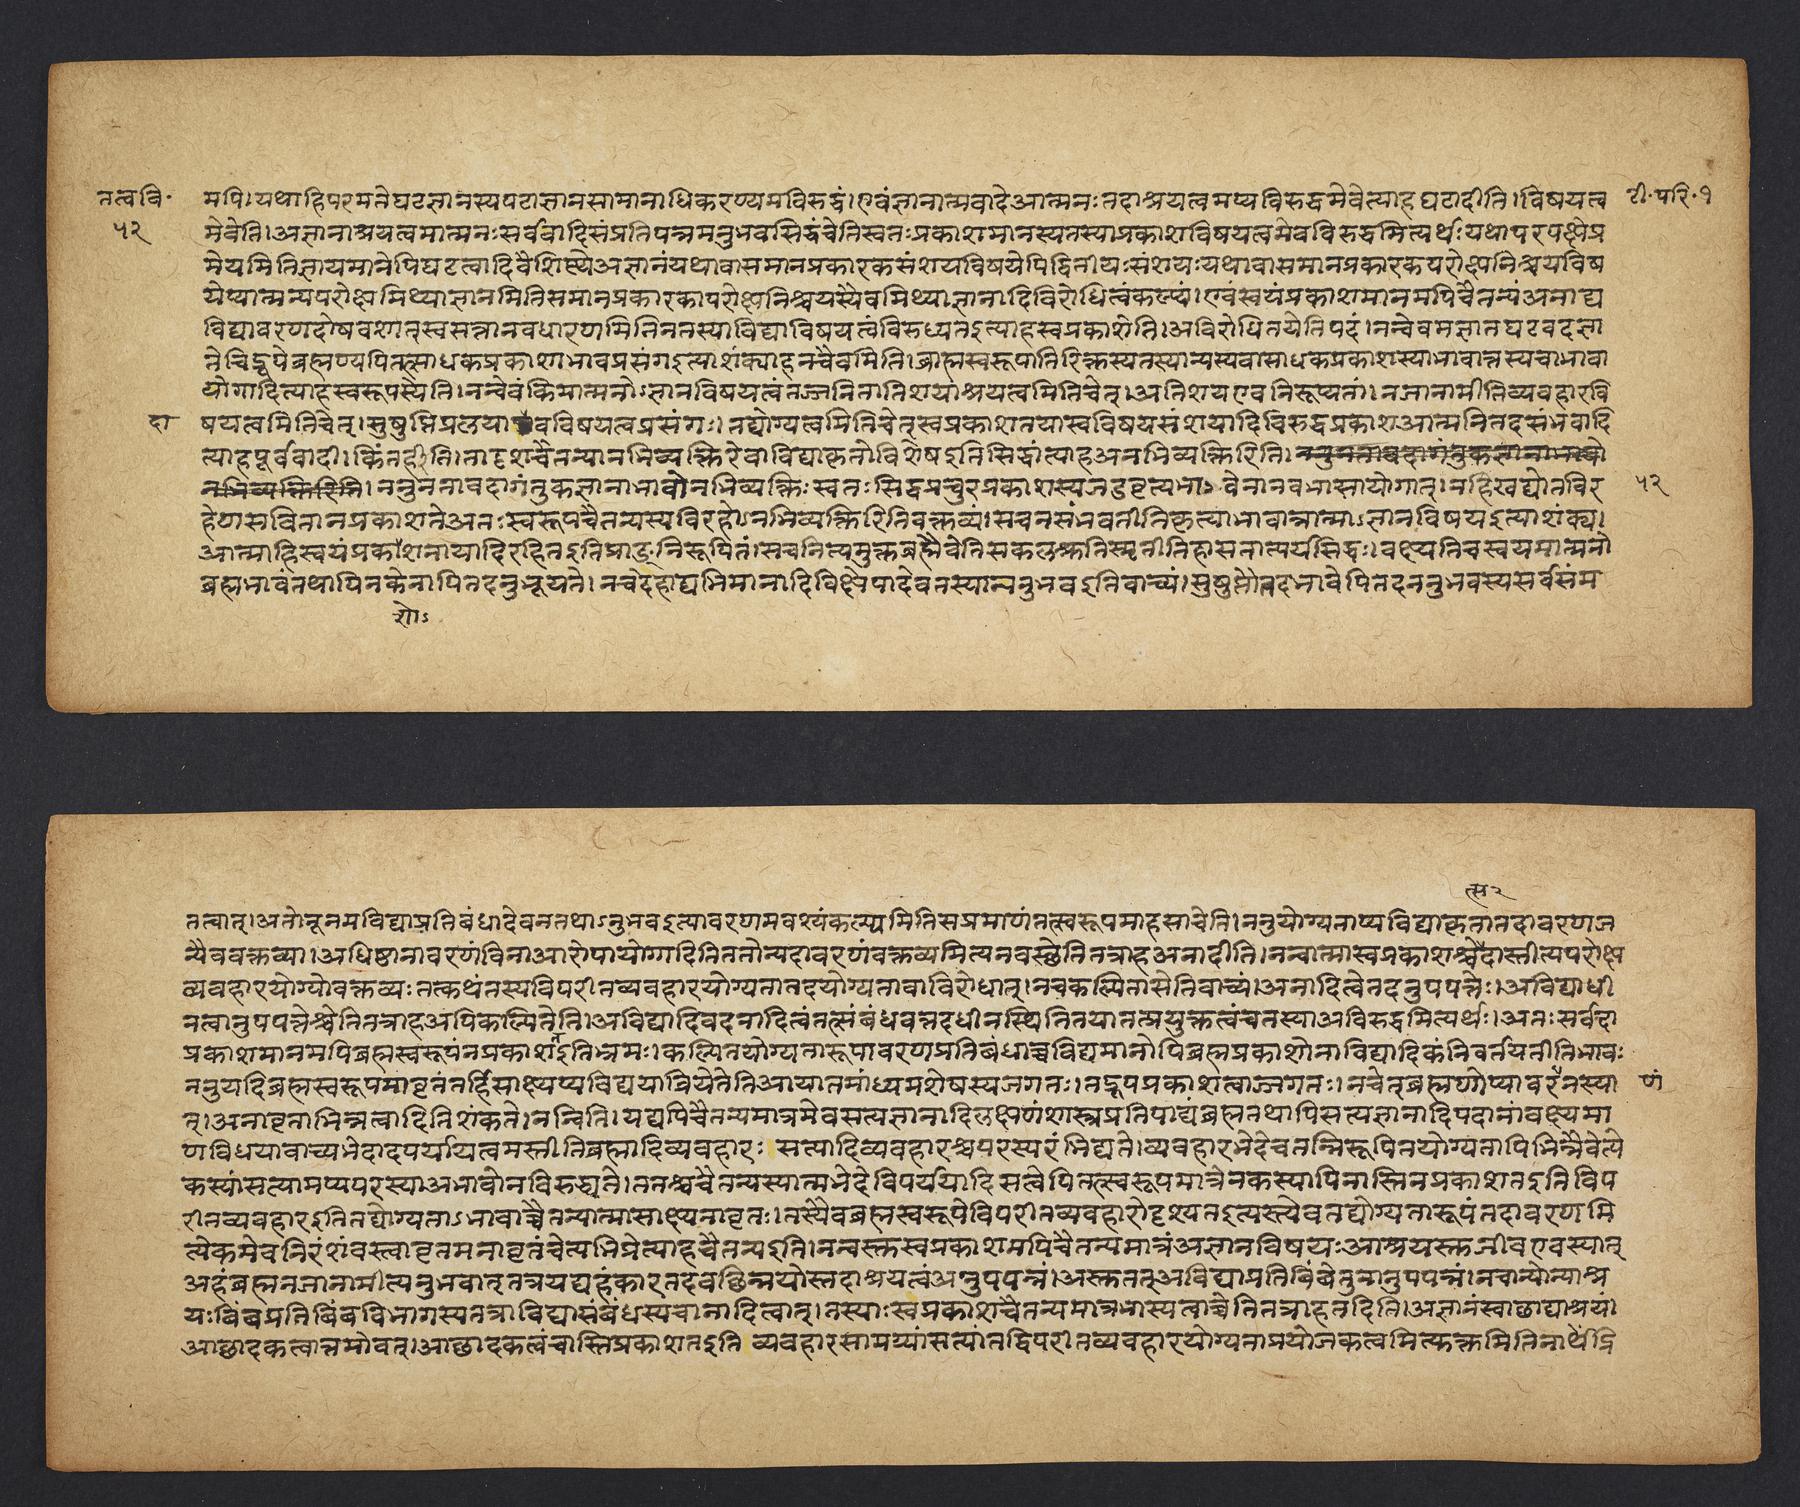 तत्ववि॰
५२
टी॰परि॰१
मपि।यथाहिपरमतेघटज्ञानस्यपटाज्ञानसामानाधिकरण्यमविरुद्धं।एवंज्ञानात्मवादेआत्मनःतदाश्रयत्वमप्यविरुद्धमेवेत्याहघटादीति।विषयत्व
मेवेति।अज्ञानाश्रयत्वमात्मनःसर्ववादिसंप्रतिपन्नमनुभवसिद्धंचेतिस्वतःप्रकाशमानस्यतस्याप्रकाशविषयत्वमेवविरुद्धमित्यर्थःयथापरपक्षेप्र
मेयमितिज्ञायमानेपिघटत्वादिवैशिष्ट्येअज्ञानंयथावासमानप्रकारकसंशयविषयेपिद्वितीयःसंशयःयथावासमानप्रकारकपरोक्षनिश्चयविष
येप्यात्मन्यपरोक्षमिथ्याज्ञानमितिसमानप्रकारकापरोक्षनिश्चयस्यैवमिथ्याज्ञानादिविरोधित्वंकल्प्यं।एवंस्वयंप्रकाशमानमपिचैतन्यंअनाद्य
विद्यावरणदोषवशात्स्वसत्तानवधारणमितिनतस्याविद्याविषयत्वंविरुध्यतइत्याहस्वप्रकाशेति।अविरोधितयेतिपदं।नन्वेवमज्ञातघटवदज्ञा
तेचिद्रूपेब्रह्मण्यपितत्साधकप्रकाशाभावप्रसंगइत्याशंक्याहनचैवमिति।ब्राह्मस्वरूपातिरिक्तस्यतस्यान्यस्यवासाधकप्रकाशस्याभावात्तस्यचाभावा
योगादित्याहस्वरूपस्येति।नन्वेवंकिमात्मनोऽज्ञानविषयत्वंतज्जनितातिशयाश्रयत्वमितिचेत्।अतिशयएवनिरूप्यतां।नजानामीतिव्यवहारवि
दा
षयत्वमितिचेत्।सुषुप्तिप्रलयावविषयत्वप्रसंगः।तद्योग्यत्वमितिचेत्स्वप्रकाशतयास्वविषयसंशयादिविरुद्धप्रकाशआत्मनितदसंभवादि
त्याहपूर्ववादी।किंतर्हीति।तादृशचैतन्यानभिव्यक्तिरेवाविद्याकृतोविशेषइतिसिद्धांत्याहअनभिव्यक्तिरिति।ननुनतावदागंतुकज्ञानाभावो
नभिव्यक्तिरिति।ननुनतावदागंतुकज्ञानाभावोनभिव्यक्तिःस्वतःसिद्धप्रचुरप्रकाशस्यजडवृत्त्यभावेनानवभासायोगात्।नहिखद्योतविर
५२
हेणसवितानप्रकाशतेअतःस्वरूपचैतन्यस्यविरहोऽनभिव्यक्तिरितिवक्तव्यं।सचनसंभवतीतिकृत्याभावान्नात्माऽज्ञानविषयइत्याशंक्य।
आत्माहिस्वयंप्रकाशनायादिरहितइतिप्राङ्निरूपितं।सचनित्यमुक्तब्रह्मैवेतिसकलश्रुतिस्मृतीतिहासतात्पर्यसिद्धः।वक्ष्यतिचस्वयमात्मनो
ब्रह्मभावंतथापिनकेनापितदनुभूयते।नचदेहाद्यभिमानादिविक्षेपादेवतस्यान्यनुभवइतिवाच्यं।सुषुप्तौतदभावेपितदननुभवस्यसर्वसंम
शोऽ
त्स२
तत्वात्।अतोनूनमविद्याप्रतिबंधादेवनतथाऽनुभवइत्यावरणमवश्यंकल्प्यमितिसप्रमाणंतत्स्वरूपमाहसाचेति।ननुयोग्यताप्यविद्याकृतातदावरणज
न्यैववक्तव्या।अधिष्ठानावरणंविनाआरोपायोगादितिततोन्यदावरणंवक्तव्यमित्यनवस्थेतितत्राहअनादीति।नन्वात्मास्वप्रकाशश्चेदास्तीत्यपरोक्ष
व्यवहारयोग्योवक्तव्यःतत्कथंतस्यविपरीतव्यवहारयोग्यतातदयोग्यतावाविरोधात्।नचकल्पितासेतिवाच्यं।अनादित्वेतदनुपपत्तेः।अविद्याधी
नत्वानुपपत्तेश्चेतितत्राहअपिकल्पितेति।अविद्यादिवदनादित्वंतत्संबंधवत्तदधीनस्थितितयातत्प्रयुक्तत्वंचतस्याअविरुद्धमित्यर्थः।अतःसर्वदा
प्रकाशमानमपिब्रह्मस्वरूपंनप्रकाशतइतिभ्रमः।कल्पितयोग्यतारूपावरणप्रतिबंधाच्चविद्यमानोपिब्रह्मप्रकाशोनाविद्यादिकंनिवर्तयतीतिभावः
ननुयदिब्रह्मस्वरूपमावृतंतर्हिसाक्ष्यप्यविद्ययाव्रियेतेतिआयातमांध्यमशेषस्यजगतः।तद्रूपप्रकाशत्वाज्जगतः।नचेत्ब्रह्मणोप्यावरनंस्या
णं
त्।अनावृताभिन्नत्वादितिशंकते।नन्विति।यद्यपिचैतन्यमात्रमेवसत्यज्ञानादिलक्षणंशास्त्रप्रतिपाद्यंब्रह्मतथापिसत्यज्ञानादिपदानांवक्ष्यमा
णविधयावाच्यभेदादपर्यायत्वमस्तीतिब्रह्मादिव्यवहारः सत्यादिव्यवहारश्चपरस्परंभिद्यते।व्यवहारभेदेचतन्निरूपितयोग्यतापिभिन्नैवेत्ये
कस्यांसत्यामप्यपरस्याअभावोनविरुद्ध्यते।ततश्चचैतन्यस्यात्मभेदेविपर्ययादिसत्वेपितत्स्वरूपमात्रेनकस्यापिनास्तिनप्रकाशतइतिविप
रीतव्यवहारइतितद्योग्यताऽभावाच्चैतन्यात्मासाक्ष्यनावृतः।तस्यैवब्रह्मस्वरूपेविपरीतव्यवहारोदृश्यतइत्यस्त्येवतद्योग्यतारूपंतदावरणमि
त्येकमेवनिरंशंवस्त्वावृतमनावृतंचेत्यभिप्रेत्याहचैतन्यइति।नन्वस्तुस्वप्रकाशमपिचैतन्यमात्रंअज्ञानविषयःआश्रयस्तुजीवएवस्यात्
अहंब्रह्मनजानामीत्यनुभवात्तत्रयद्यहंकारतदवछिन्नयोस्तदाश्रयत्वंअनुपपन्नं।अस्तुतत्अविद्याप्रतिबिंबेतुनानुपपन्नं।नचान्योन्याश्र
यःबिंबप्रतिबिंबविभागस्यतत्राविद्यासंबंधस्यचानादित्वात्।तस्याःस्वप्रकाशचैतन्यमात्रभास्यत्वाच्चेतितत्राहतदिति।अज्ञानंस्वाछाद्याश्रयं
आछादकत्वात्तमोवत्।आछादकत्वंचास्तिप्रकाशतइति व्यवहारसामग्र्यांसत्यांतद्विपरीतव्यवहारयोग्यताप्रयोजकत्वमित्युक्तमितिनार्थेद्रि